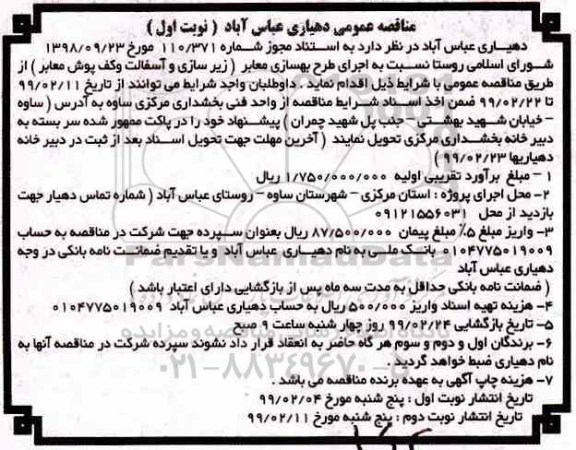 مناقصه عمومی دهیاری عباس آباد ( نوبت اول )
دهیاری عباس آباد در نظر دارد به استناد مجوز شماره ۱۱۰/۳۷۱ مورخ ۱۳۹۸/۰۹/۲۳
شورای اسلامی روستا نسبت به اجرای طرح بهسازی معابر ( زیر سازی و آسفالت وکف پوش معابر ) از
طریق مناقصه عمومی با شرایط ذیل اقدام نماید . داوطلبان واجد شرایط می توانند از تاریخ ۹۹/۰۲/۱۱
تا ۹۹/۰۲/۲۲ ضمن اخذ اسناد شرایط مناقصه از واحد فنی بخشداری مرکزی ساوه به آدرس ( ساوه
- خیابان شهید بهشتی - جنب پل شهید چمران ) پیشنهاد خود را در پاکت ممهور شده سر بسته به
دبیر خانه بخشداری مرکزی تحویل نمایند ( آخرین مهلت جهت تحویل اسناد بعد از ثبت در دبیر خانه
دهیاریها ۹۹/۰۲/۲۳ )
۱ - مبلغ برآورد تقریبی اولیه ۱/۷۵۰/۰۰۰/۰۰۰ ریال
۲- محل اجرای پروژه : استان مرکزی - شهرستان ساوه - روستای عباس آباد ( شماره تماس دهیار جهت
بازدید از محل ۰۹۱۲۱۵۵۶۰۳۱
۳- واریز مبلغ ۵٪ مبلغ پیمان ۸۷/۵۰۰/۰۰۰ ریال بعنوان سپرده جهت شرکت در مناقصه به حساب
۰۱۰۴۷۷۵۰۱۹۰۰۹ بانک ملی به نام دهیاری عباس آباد و یا تقدیم ضمانت نامه بانکی در وجه
دهیاری عباس آباد
( ضمانت نامه بانکی حداقل به مدت سه ماه پس از بازگشایی دارای اعتبار باشد )
۴- هزینه تهیه اسناد واریز ۵۰۰/۰۰۰ ریال به حساب دهیاری عباس آباد ۰۱۰۴۷۷۵۰۱۹۰۰۹
۵- تاریخ بازگشایی ۹۹/۰۲/۲۴ روز چهار شنبه ساعت ۹ صبح
۶- برندگان اول و دوم و سوم هر گاه حاضر به انعقاد قرار داد نشوند سپرده شرکت در مناقصه آنها به
نام دهیاری ضبط خواهد گردید.
۷- هزینه چاپ آگهی به عهده برنده مناقصه می باشد .
تاریخ انتشار نوبت اول : پنج شنبه مورخ ۹۹/۰۲/۰۴
تاریخ انتشار نوبت دوم : پنج شنبه مورخ ۹۹/۰۲/۱۱
ParsNamadData
۰۲۱-۸۸۳۴۹۶۷۰-۵